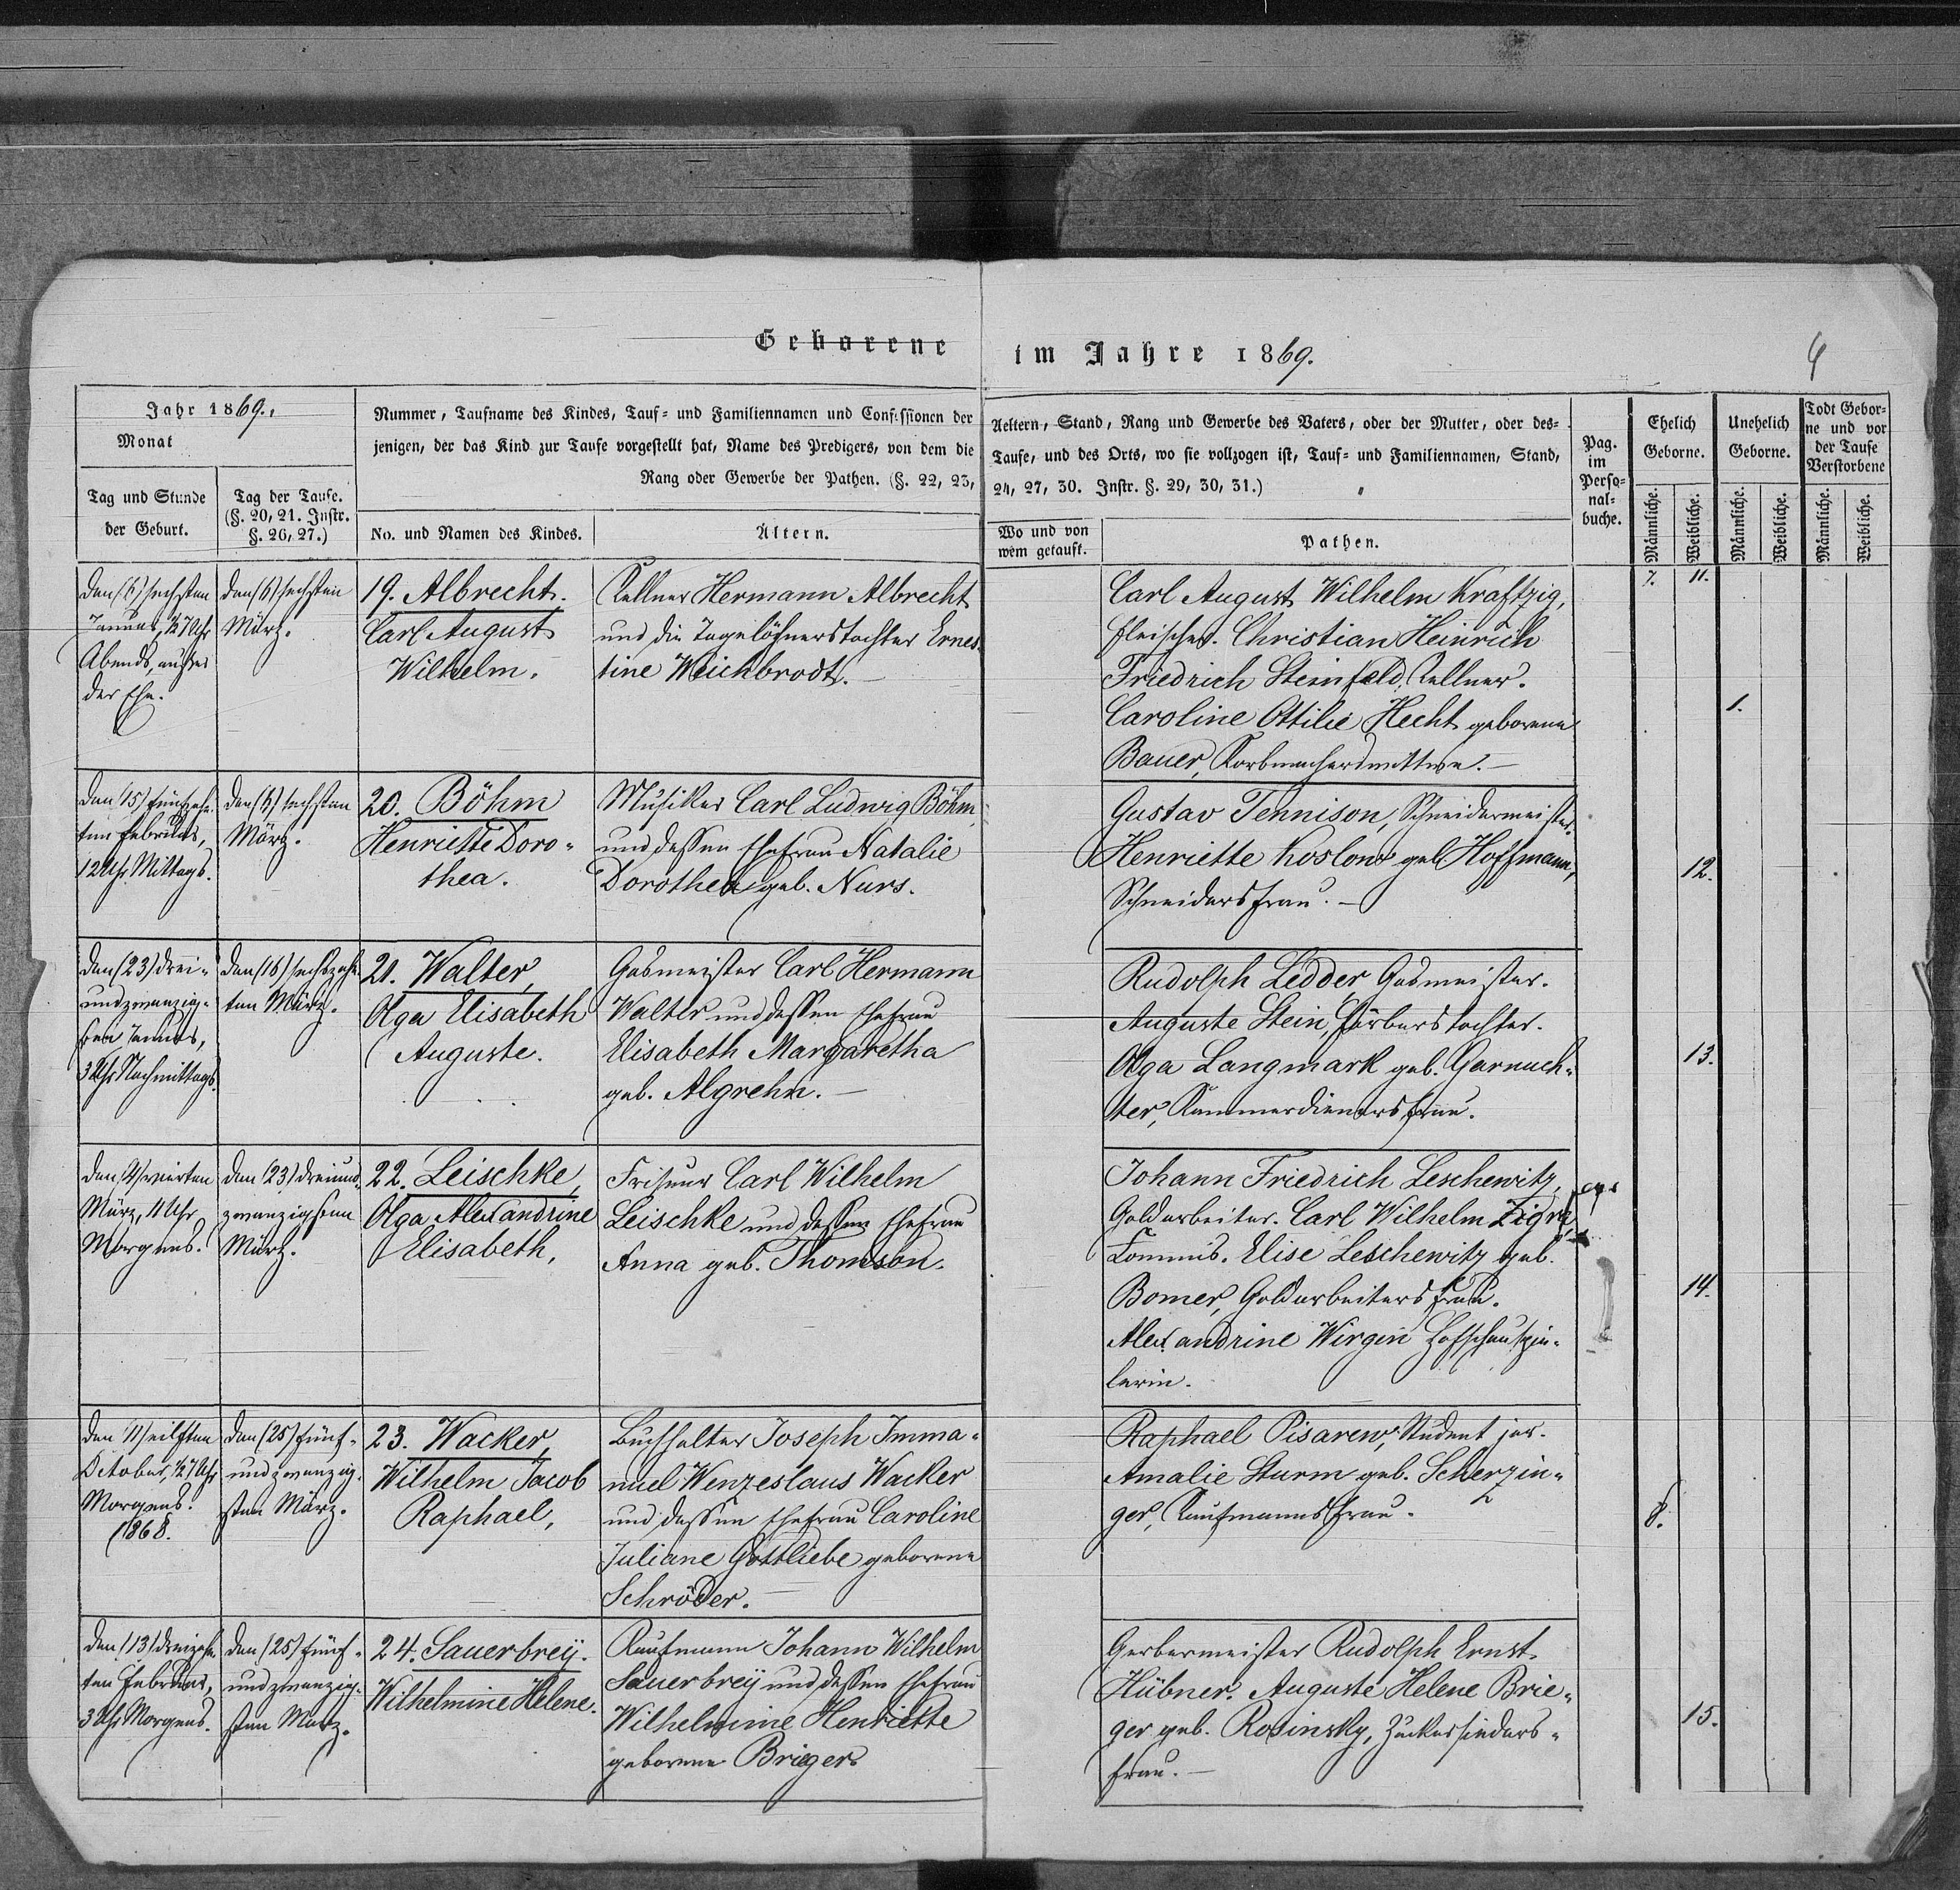 Geborene im Jahre 1869.
Jahr 1869.
Monat
Tag und Stunde
der Geburt.
Tag der Taufe.
(§. 20, 21. Instr.
§. 26, 27.)
Nummer, Taufname des Kindes, Tauf- und Familiennamen und Confessionen der
jenigen, der das Kind zur Taufe vorgestellt hat, Name des Predigers, von dem die
Rang oder Gewerbe der Pathen. (§. 22, 23,
No. und Namen des Kindes.
Ältern.
Aeltern, Stand, Rang und Gewerbe des Vaters, oder der Mutter, oder des-
Taufe, und des Orts, wo sie vollzogen ist, Tauf- und Familiennamen, Stand,
24, 27, 30. Instr. §. 29, 30, 31.)
Wo und von
wem getauft.
Pathen.
Pag.
im
Perso-
nal-
buche.
Ehelich
Geborne.
Unehelich
Geborne.
Todt Gebor-
ne und vor
der Taufe
Verstorbene
Männliche.
Weibliche.
Männliche.
Weibliche.
Männliche.
Weibliche.
den (6) sechsten
Januar, 1/2 7 Uhr
Abends, außer
der Ehe.
den (6) sechsten
März.
19. Albrecht.
Carl August
Wilhelm.
Kellner Hermann Albrecht
und die Tagelöhnerstochter Ernes-
tine Weichbrodt.
Carl August Wilhelm Kraftzig,
Fleischer. Christian Heinrich
Friedrich Steinfeld, Kellner.
Caroline Ottilie Hecht geborene
Bauer, Korbmacherswittwe.
7. 11.
1.
den (15) fünfzehn-
ten Februar,
12 Uhr Mittags.
den (6) sechsten
März.
20. Böhm
Henriette Doro-
thea.
Musiker Carl Ludwig Böhm
und dessen Ehefrau Natalie
Dorothea geb. Nurs.
Gustav Tennison, Schneidermeister.
Henriette Koslow geb. Hoffmann,
Schneidersfrau.
12.
den (23) drei-
undzwanzig-
sten Januar,
3 Uhr Nachmittags.
den (16) sechszehn-
ten März.
21. Walter,
Olga Elisabeth
Auguste.
Gasmeister Carl Hermann
Walter und dessen Ehefrau
Elisabeth Margaretha
geb. Algrehn.
Rudolph Ledder Gasmeister.
Auguste Stein, Färberstochter.
Olga Langmark geb. Garnuch-
ter, Kammerdienersfrau.
13.
den (4) vierten
März, 4 Uhr
Morgens.
den (23) dreiund-
zwanzigsten
März.
22. Leischke,
Olga Alexandrine
Elisabeth,
Friseur Carl Wilhelm
Leischke und dessen Ehefrau
Anna geb. Thomson.
Johann Friedrich Leschewitz,
Goldarbeiter. Carl Wilhelm Zigra,
Commis. Elise Leschewitz geb.
Bomer, Goldarbeitersfrau.
Alexandrine Wirgin Hofschauspie-
lerin.
14.
den (11) eilften
October, 1/2 7 Uhr
Morgens.
1868.
den (25) fünf-
undzwanzig-
sten März.
23. Wacker,
Wilhelm Jacob
Raphael,
Buchhalter Joseph Imma-
nuel Wenzeslaus Wacker
und dessen Ehefrau Caroline
Juliane Gottliebe geborene
Schröder.
Raphael Pisarew, Student jur.
Amalie Sturm geb. Scherzin-
ger, Kaufmannsfrau.
8.
den (13) dreizehn-
ten Februar,
3 Uhr Morgens.
den (25) fünf-
undzwanzig-
sten März.
24. Sauerbrey.
Wilhelmine Helene.
Kaufmann Johann Wilhelm
Sauerbrey und dessen Ehefrau
Wilhelmine Henriette
geborene Brieger
Gerbermeister Rudolph Ernst
Hübner. Auguste Helene Brie-
ger geb. Rosinsky, Zuckersieders-
frau.
15.